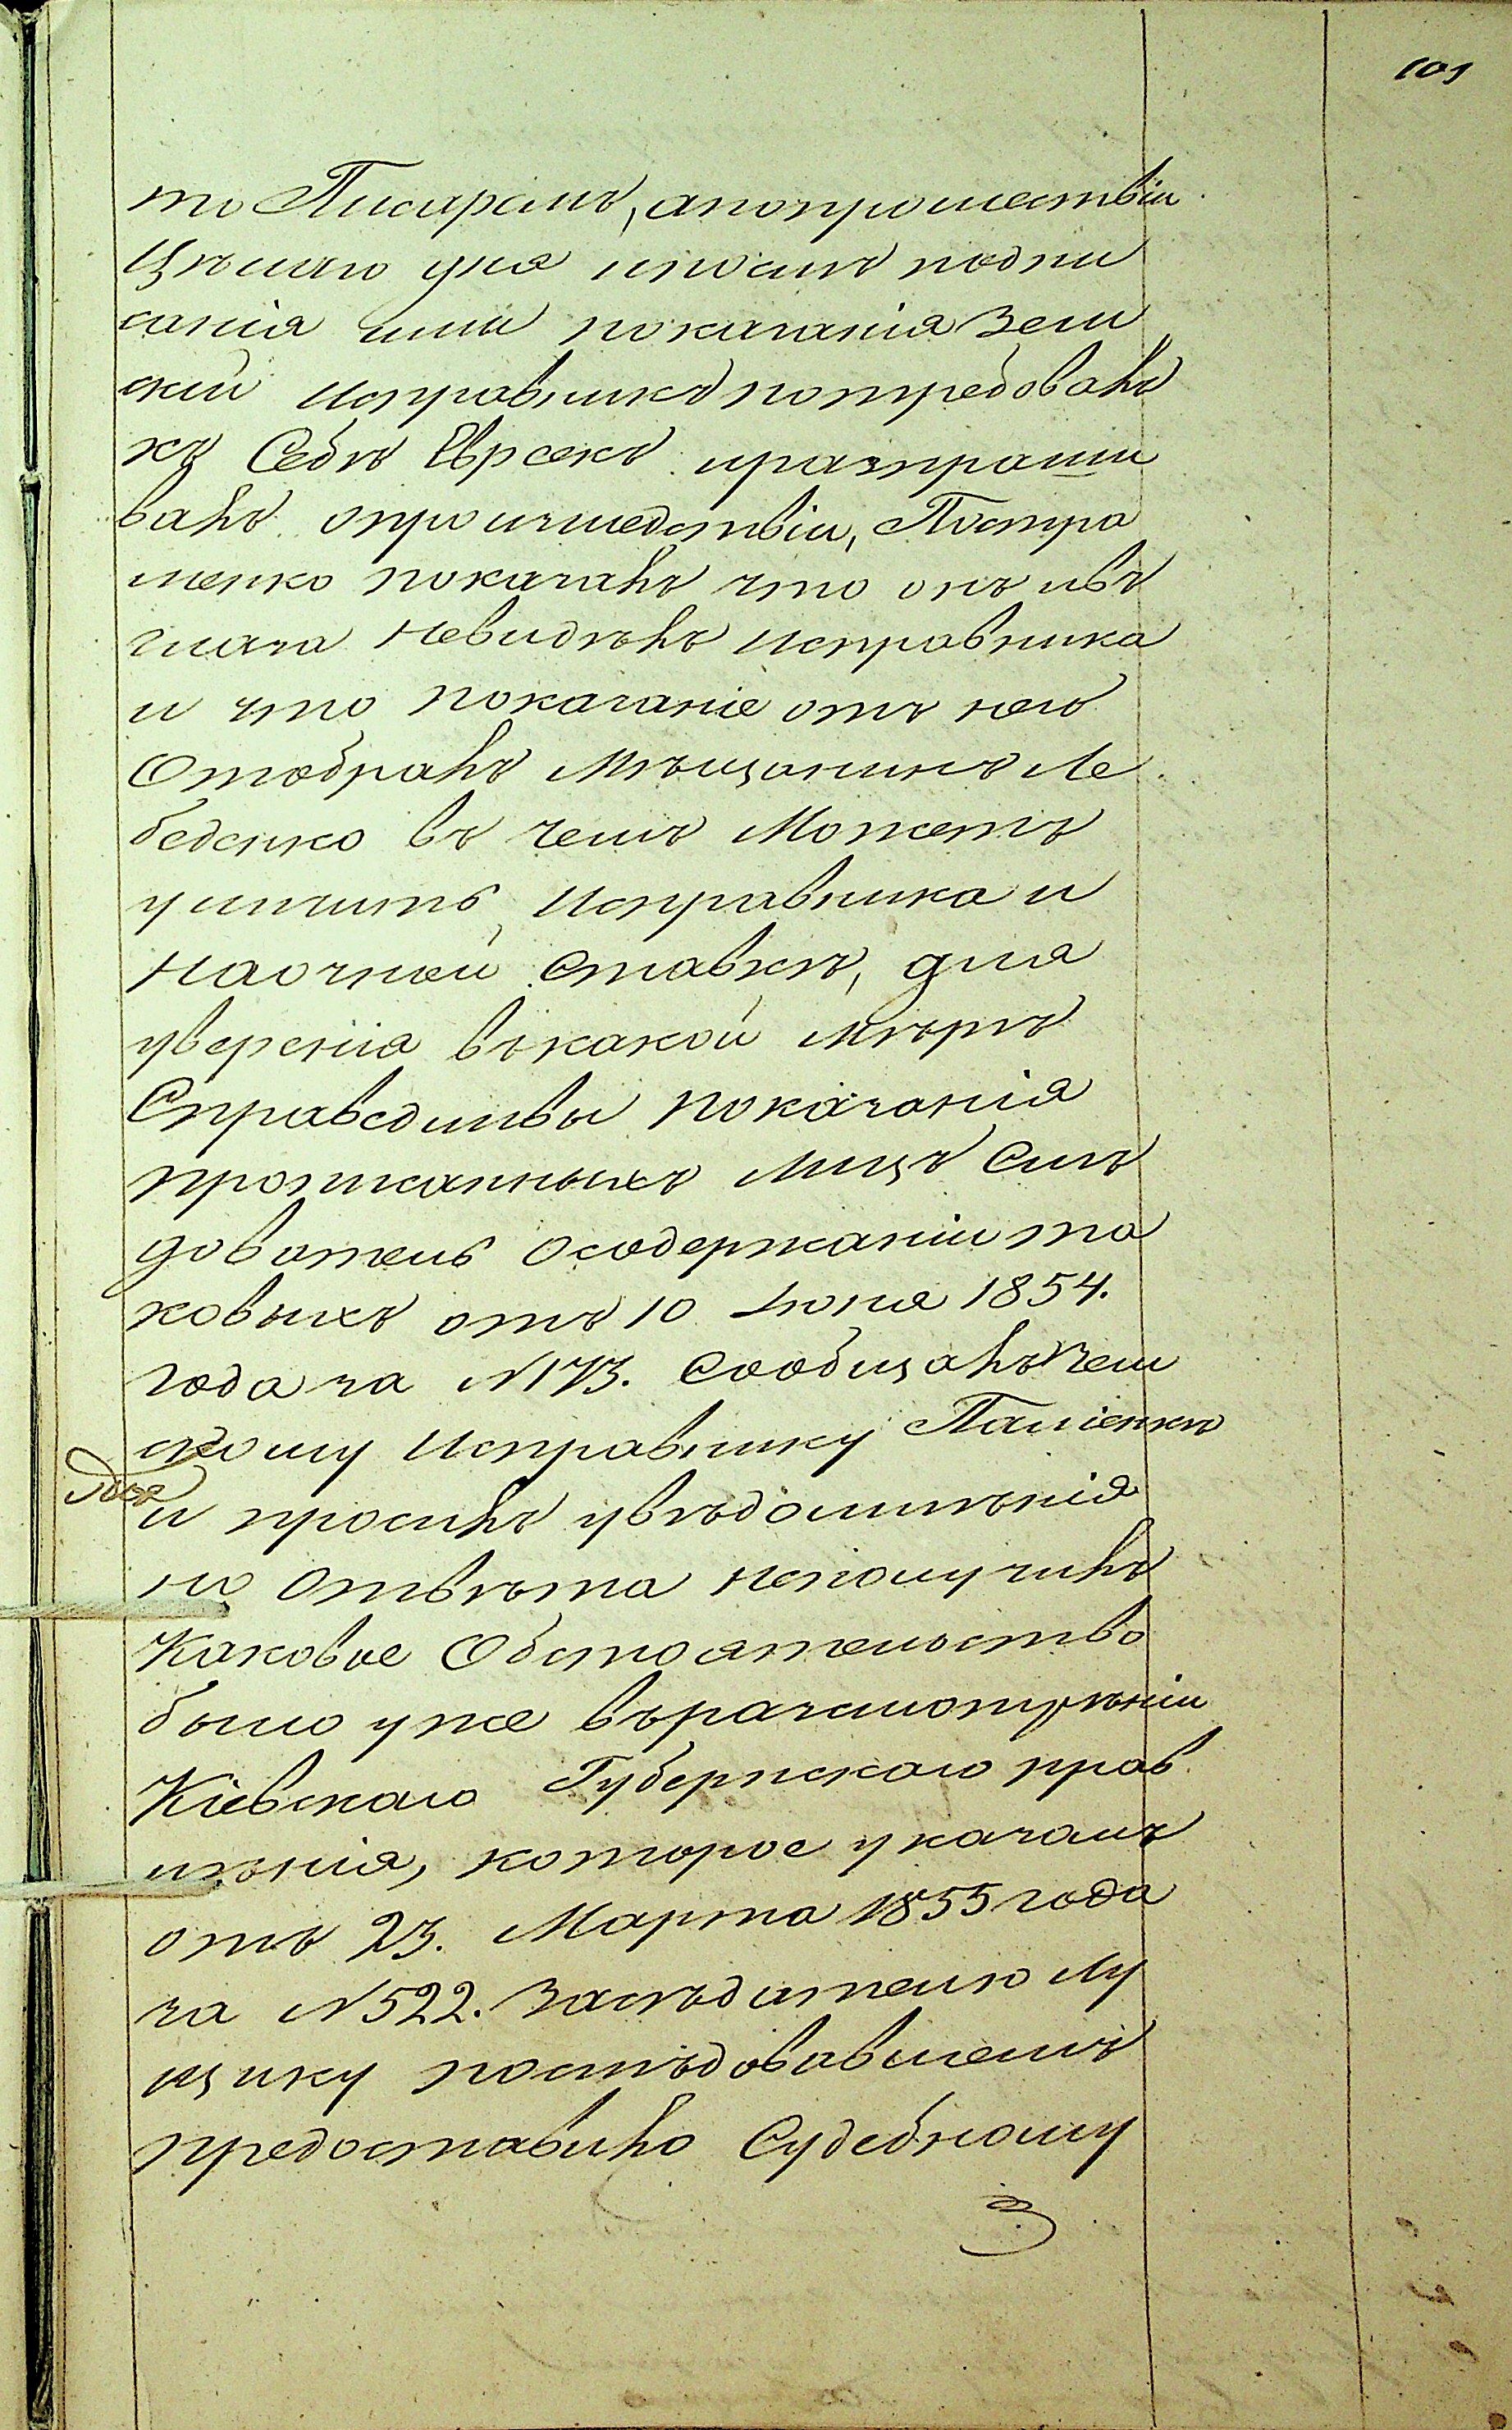 101
то Писаремъ, апопрошествіи
Цѣлаго дня ипослѣ подпи
санія ими показанія Зем
скій Исправникъ потребовалъ
къ Себѣ Евреекъ иразпраши
валъ опроизшедствіи, Постро
менко показалъ что онъ ивъ
глаза невидѣлъ Исправника
и что показаніе отъ него
Отобралъ Мѣщанинъ Ле
беденко въ чемъ Можетъ
уличить Исправника и
наочной Ставкѣ, для
уверенія вкакой мѣрѣ
Справедливы показанія
прописанныхъ лицъ Слѣ
дователь осодержаніи та
ковыхъ отъ 10 Іюня 1854.
года за №173. Сообщалъ Зем
скому Исправнику Паліенкѣ
и просилъ увѣдомленія
но Отвѣта неполучилъ
Каковое Обстоятельство
было уже въразсмотрѣніи
Кіевскаго Губернскаго прав
лѣнія, которое указомъ
отъ 23. Марта 1855 года
за №522. Засѣдателю Лу
щику послѣдовавшемъ
предоставило Судебному